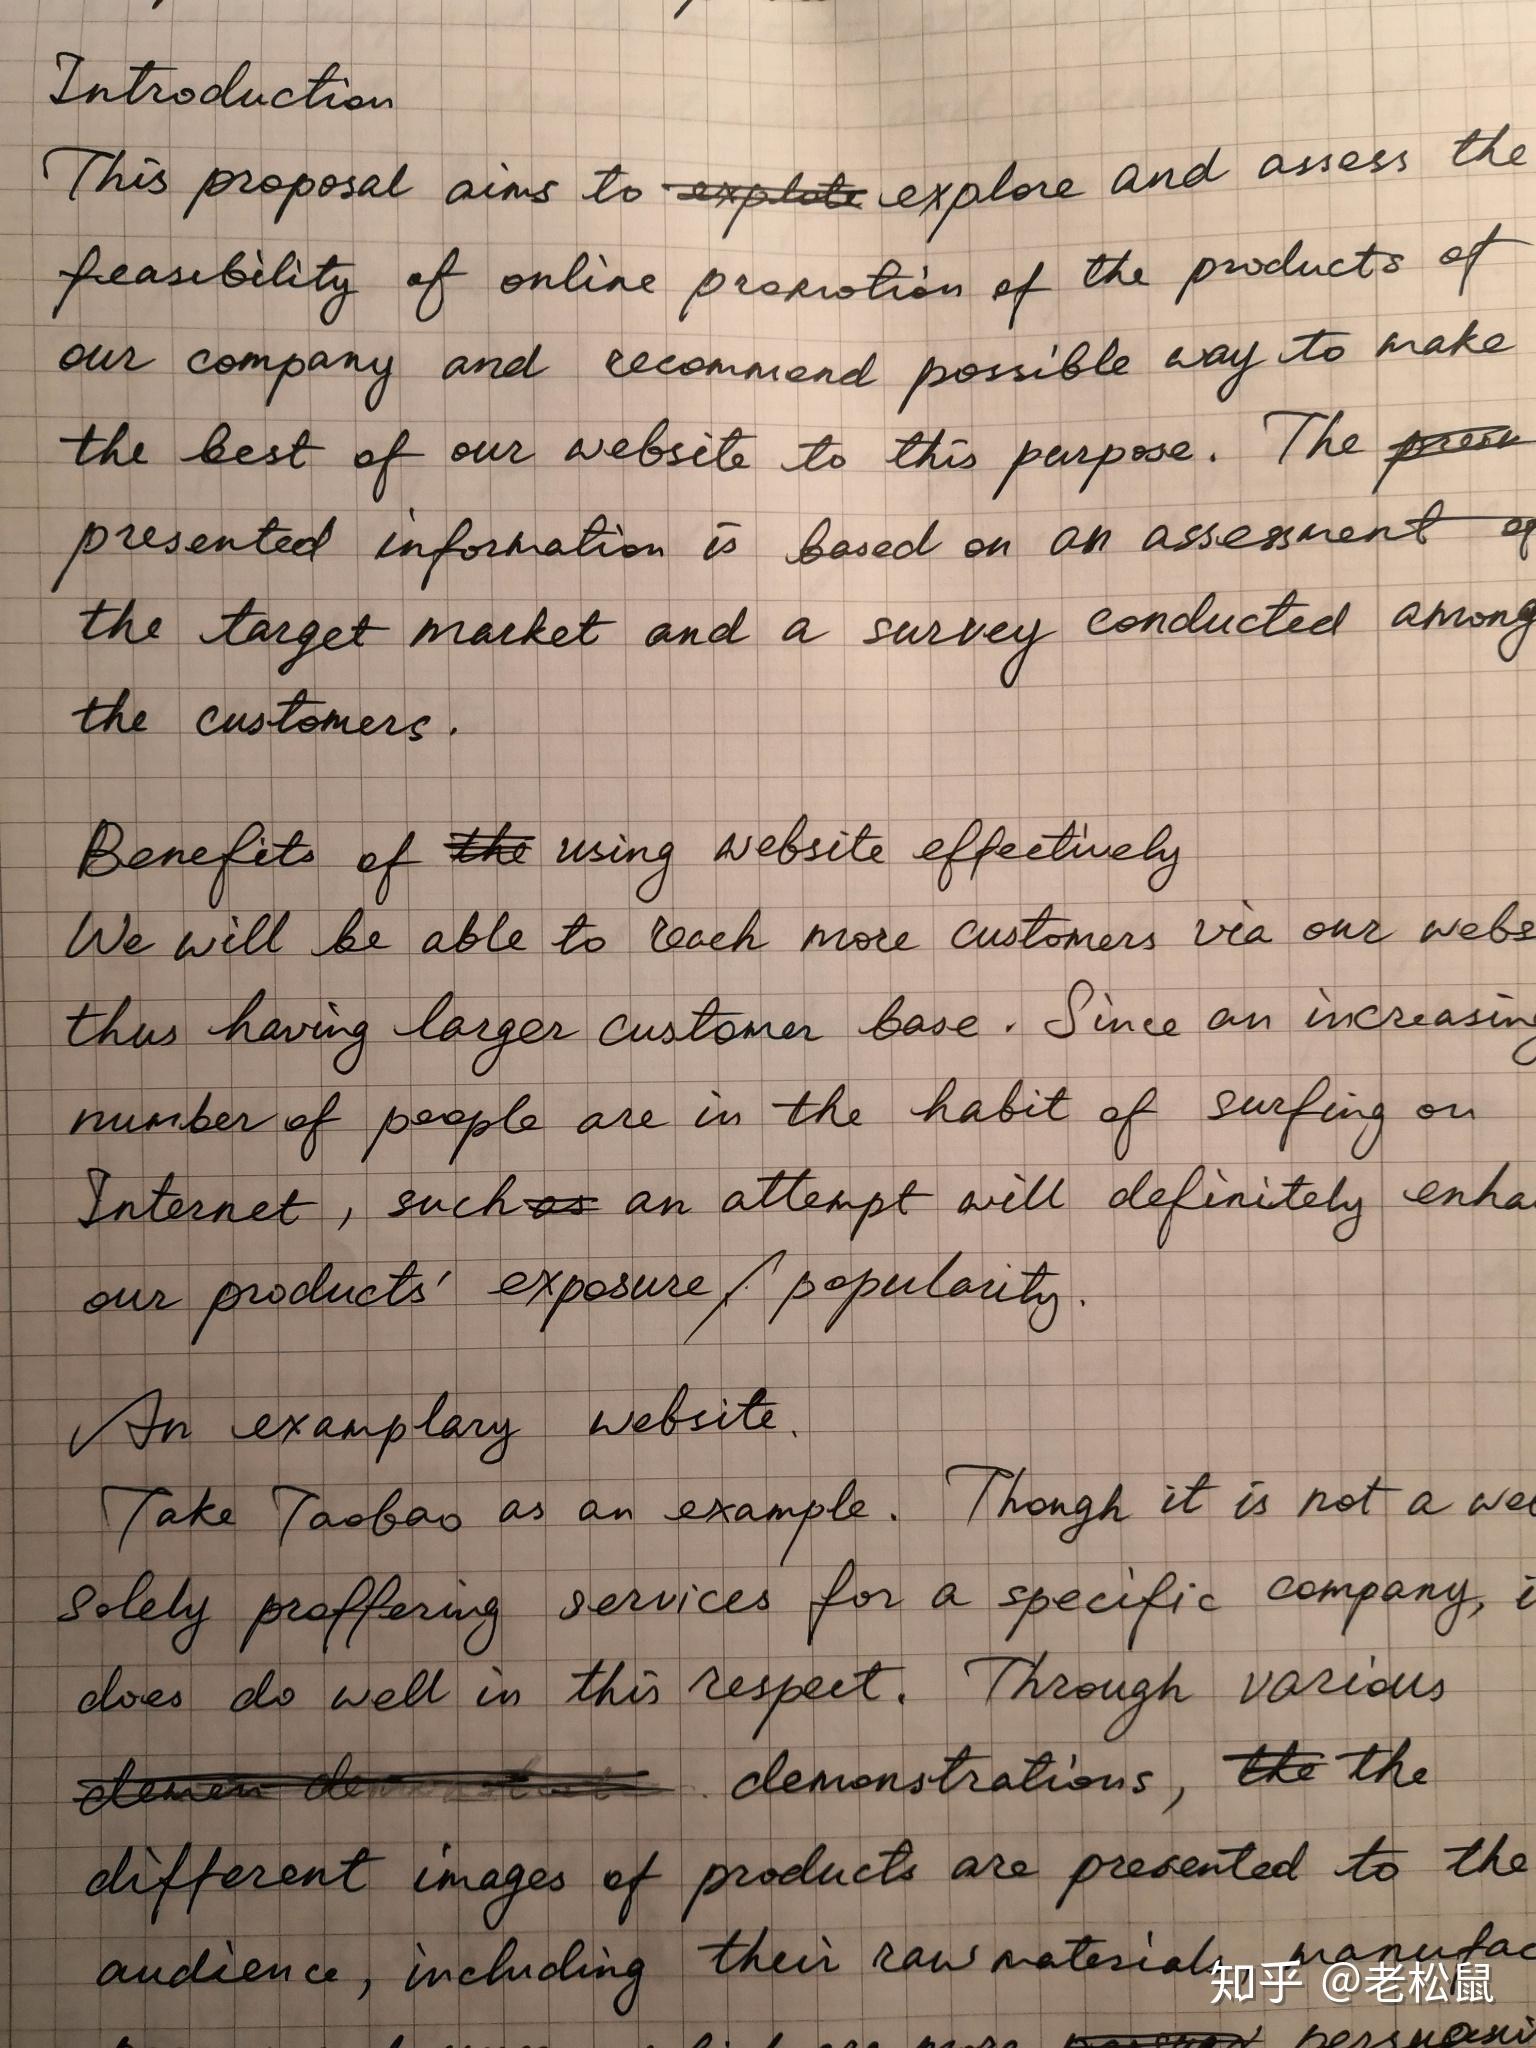 Introduction
This proposal aims to explote explore and assess the
feasibility of online promotion of the products of
our company and recommend possible way to make
the best of our website to this purpose. The
presented information is based on an assessment of
the target market and a survey conducted among
the customers.
Benefits of the using website effectively
We will be able to reach more customers via our webs
thus having larger customer base. Since an increasing
number of people are in the habit of surfing on
Internet, such as an attempt will definitely enha
our products' exposure / popularity.
An examplary website.
Take Taobao as an example. Though it is not a we
solely proffering services for a specific company, i
does do well in this respect. Through various
demonstrations, the the
different images of products are presented to the
audience, including their raw materials, manufac
are more persuasi
知乎 @老松鼠